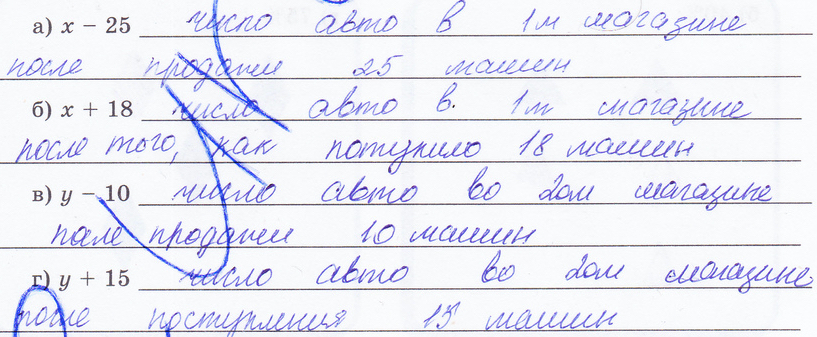 а) x − 25 число авто в 1м магазине
после продажи 25 машин
б) x + 18 число авто в 1м магазине
после того, как потупило 18 машин
в) y − 10 число авто во 2ом магазине
после продажи 10 машин
г) y + 15 число авто во 2ом магазине
после поступления 15 машин